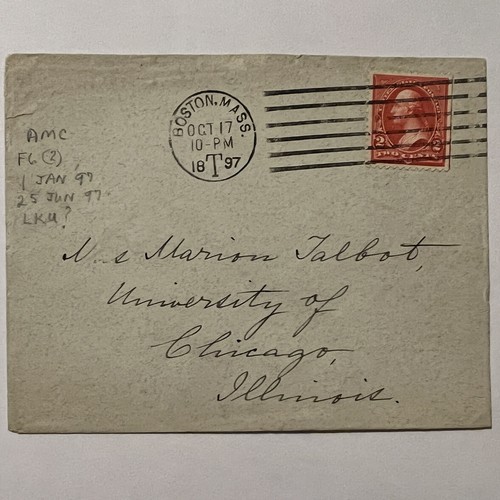 BOSTON, MASS.
OCT 17
10-PM
18 T 97
2 2
TWO CENTS
AMC
FG (2)
1 JAN 97
25 JUN 97
LKU?
Marion Talbot,
University of
Chicago,
Illinois.